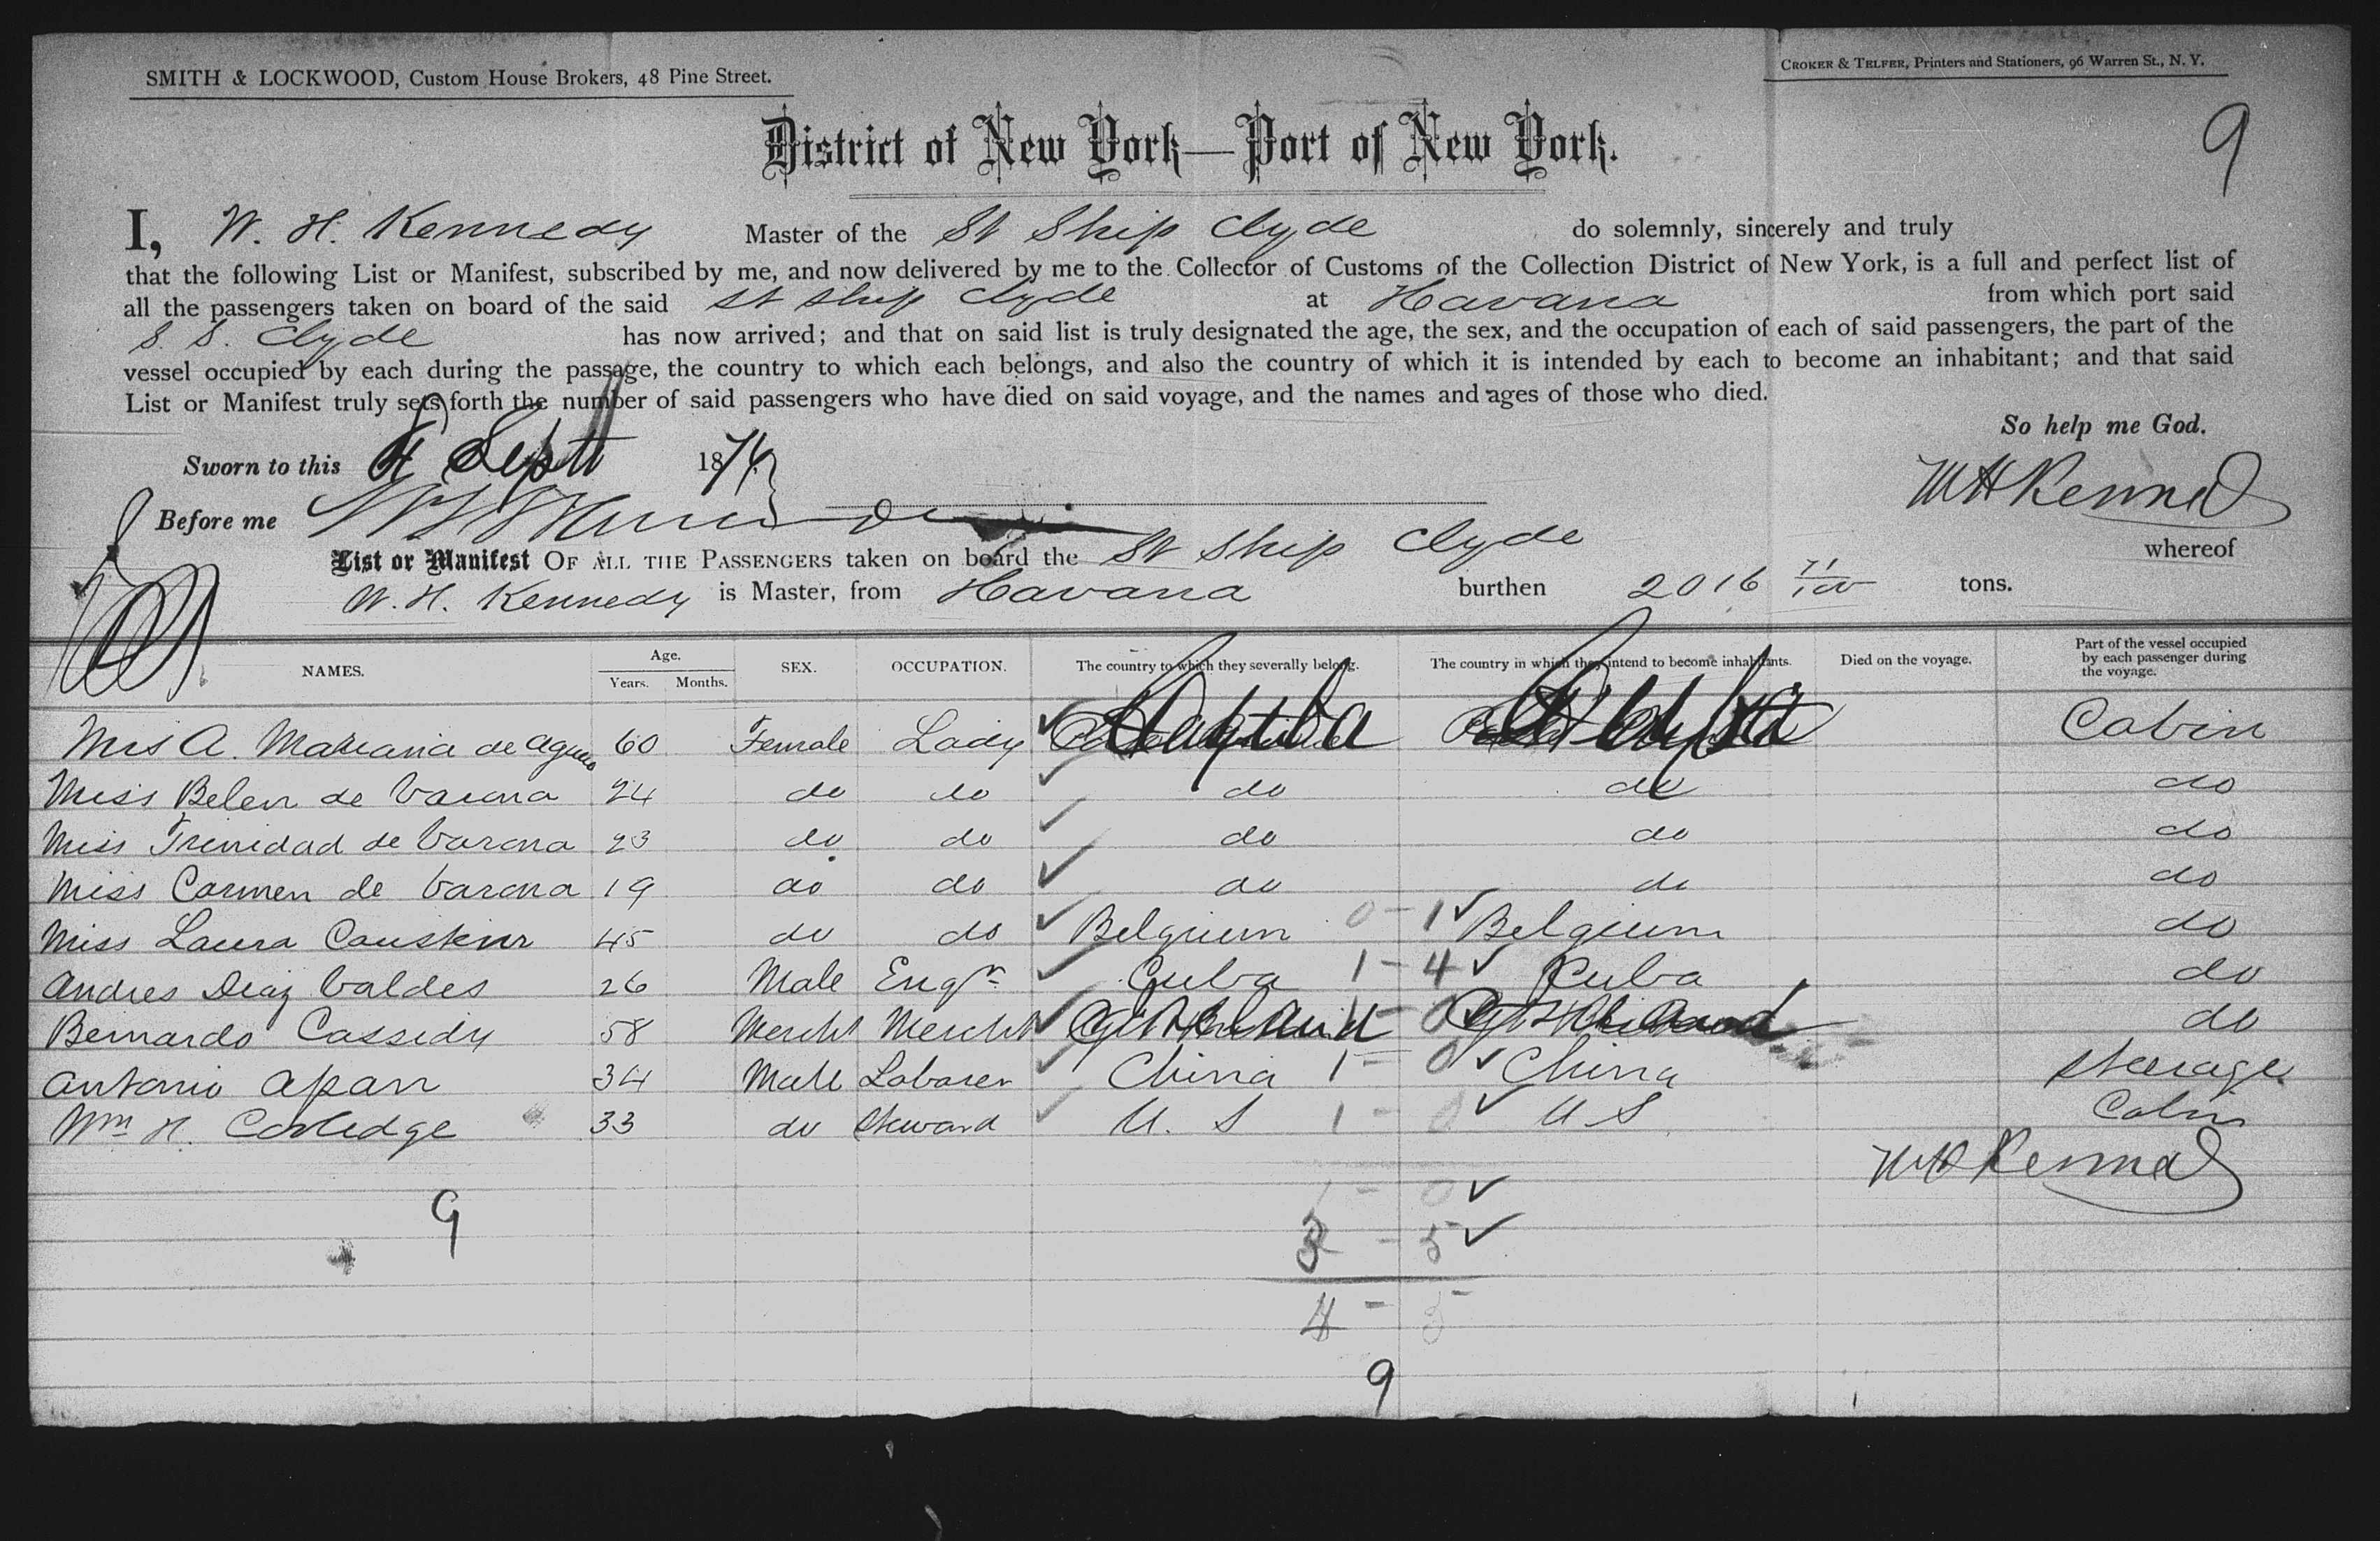 SMITH & LOCKWOOD, Custom House Brokers, 48 Pine Street.
CROKER & TELFER, Printers and Stationers, 96 Warren St., N. Y.
9
District of New York—Port of New York.
I, W. H. Kennedy Master of the St Ship Clyde do solemnly, sincerely and truly
that the following List or Manifest, subscribed by me, and now delivered by me to the Collector of Customs of the Collection District of New York, is a full and perfect list of
all the passengers taken on board of the said St Ship Clyde at Havana from which port said
S. S. Clyde has now arrived; and that on said list is truly designated the age, the sex, and the occupation of each of said passengers, the part of the
vessel occupied by each during the passage, the country to which each belongs, and also the country of which it is intended by each to become an inhabitant; and that said
List or Manifest truly sets forth the number of said passengers who have died on said voyage, and the names and ages of those who died.
So help me God.
Sworn to this Sept 1874
WH Kennedy
Before me
List or Manifest OF ALL THE PASSENGERS taken on board the St Ship Clyde whereof
W. H. Kennedy is Master, from Havana burthen 2016 71/100 tons.
NAMES. Age. Years. Months. SEX. OCCUPATION. The country to which they severally belong. The country in which they intend to become inhabitants. Died on the voyage. Part of the vessel occupied by each passenger during the voyage.
Mrs A. Mariana de Aguero 60 Female Lady Cuba Cuba Cabin
Miss Belen de Varona 24 do do do do do
Miss Trinidad de Varona 23 do do do do do
Miss Carmen de Varona 19 do do do do do
Miss Laura 45 do do Belgium 0 - 1 Belgium do
Andres Diaz Valdes 26 Male Engr Cuba 1 - 4 Cuba do
Bernardo Cassidy 58 Mercht Mercht do
Antonio Apan 34 Male Laborer China 1 - 0 China Steerage
Wm H. 33 do Steward U. S 1 - 0 U S Cabin
WH Kennedy
1 - 0
9
3 - 5
4 - 5
9